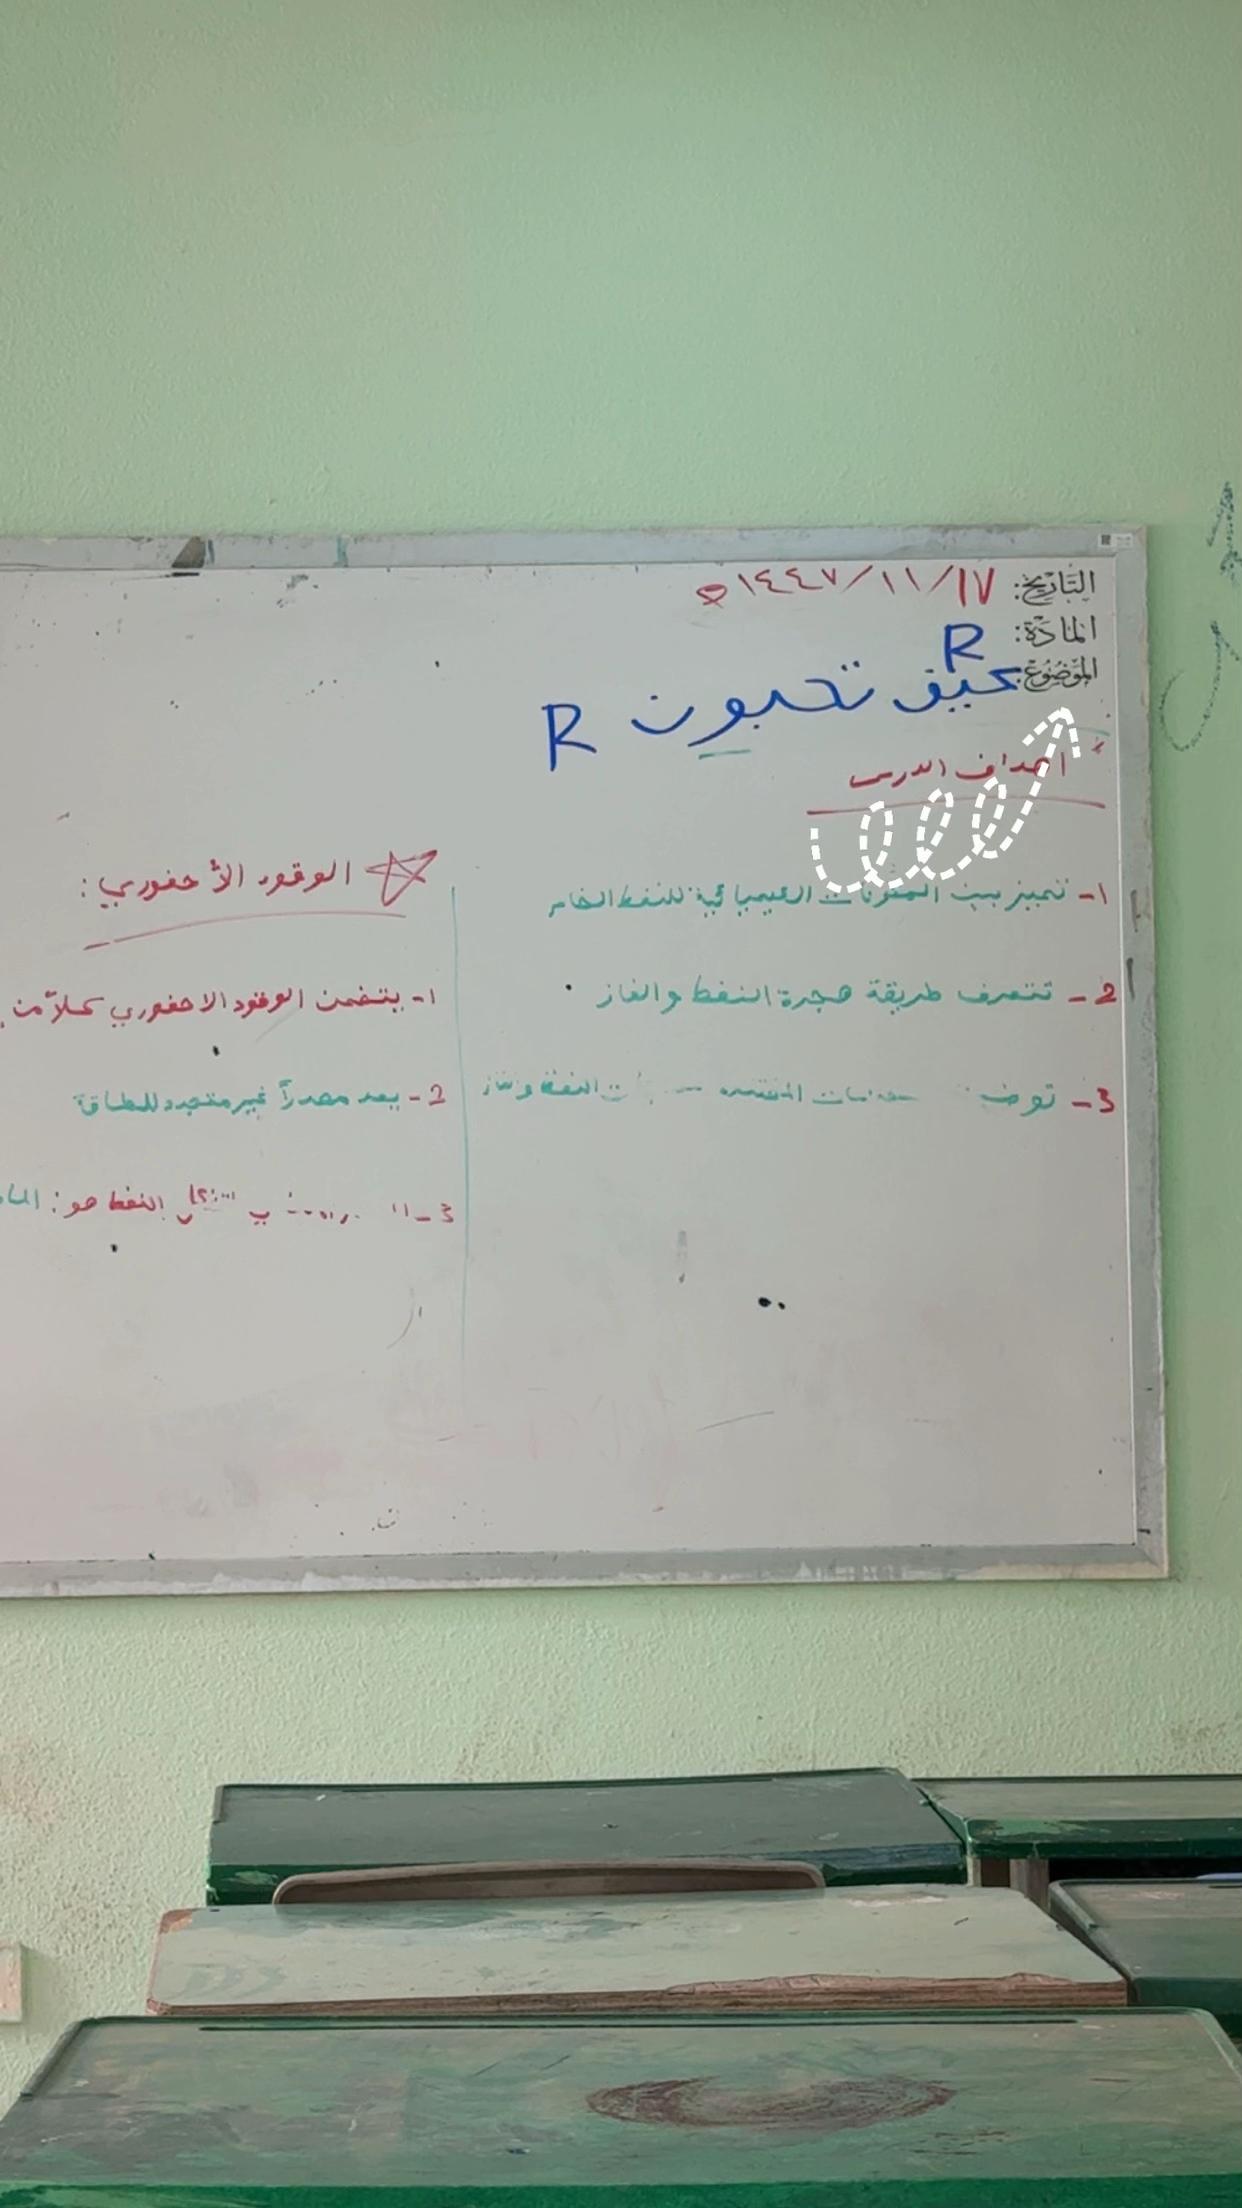 التاريخ: ١٤٤٧/١١/١٧ هـ
المادة: R
الموضوع: كيف تحبون R
أهداف الدرس
١- تميز بين المكونات الكيميائية للنفط الخام
2- تتعرف طريقة هجرة النفط والغاز
3- توضح المختلفة النفط والغاز
الوقود الأحفوري:
١- يتضمن الوقود الاحفوري كلاً من
2- يعد مصدراً غير متجدد للطاقة
3- النفط هو: